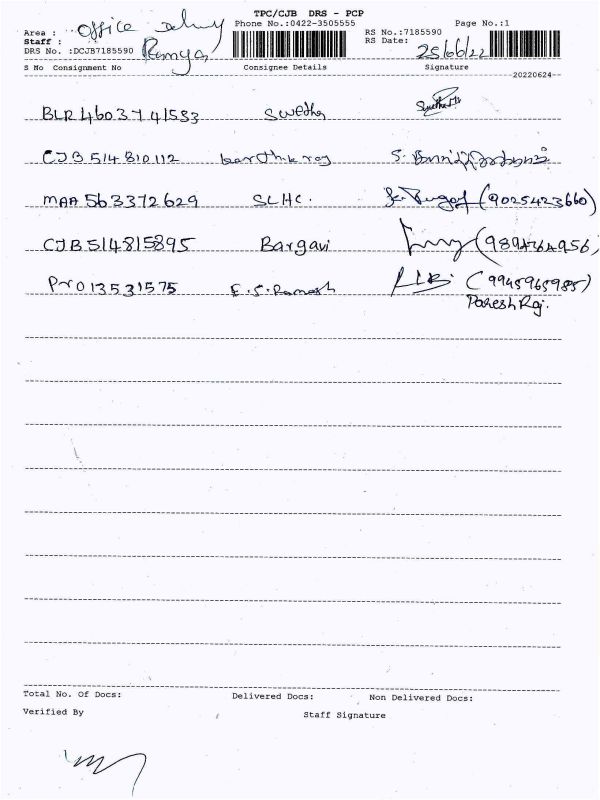 TPC/CJB DRS - PCP
Area : Office Delivery
Phone No.:0422-3505555
Page No.:1
Staff : Ramya
RS No.:7185590
DRS No. :DCJB7185590
RS Date: 25/06/22
S No Consignment No Consignee Details Signature
20220624
BLR 4603741583 Swetha
CJB 514810112 karthik raj
MAA 563372629 SLHC. (9025423660)
CJB 514815895 Bargavi (989464956)
PNQ 13531575 E.S.Ramesh (9945965985)
Paresh Raj.
Total No. Of Docs: Delivered Docs: Non Delivered Docs:
Verified By Staff Signature